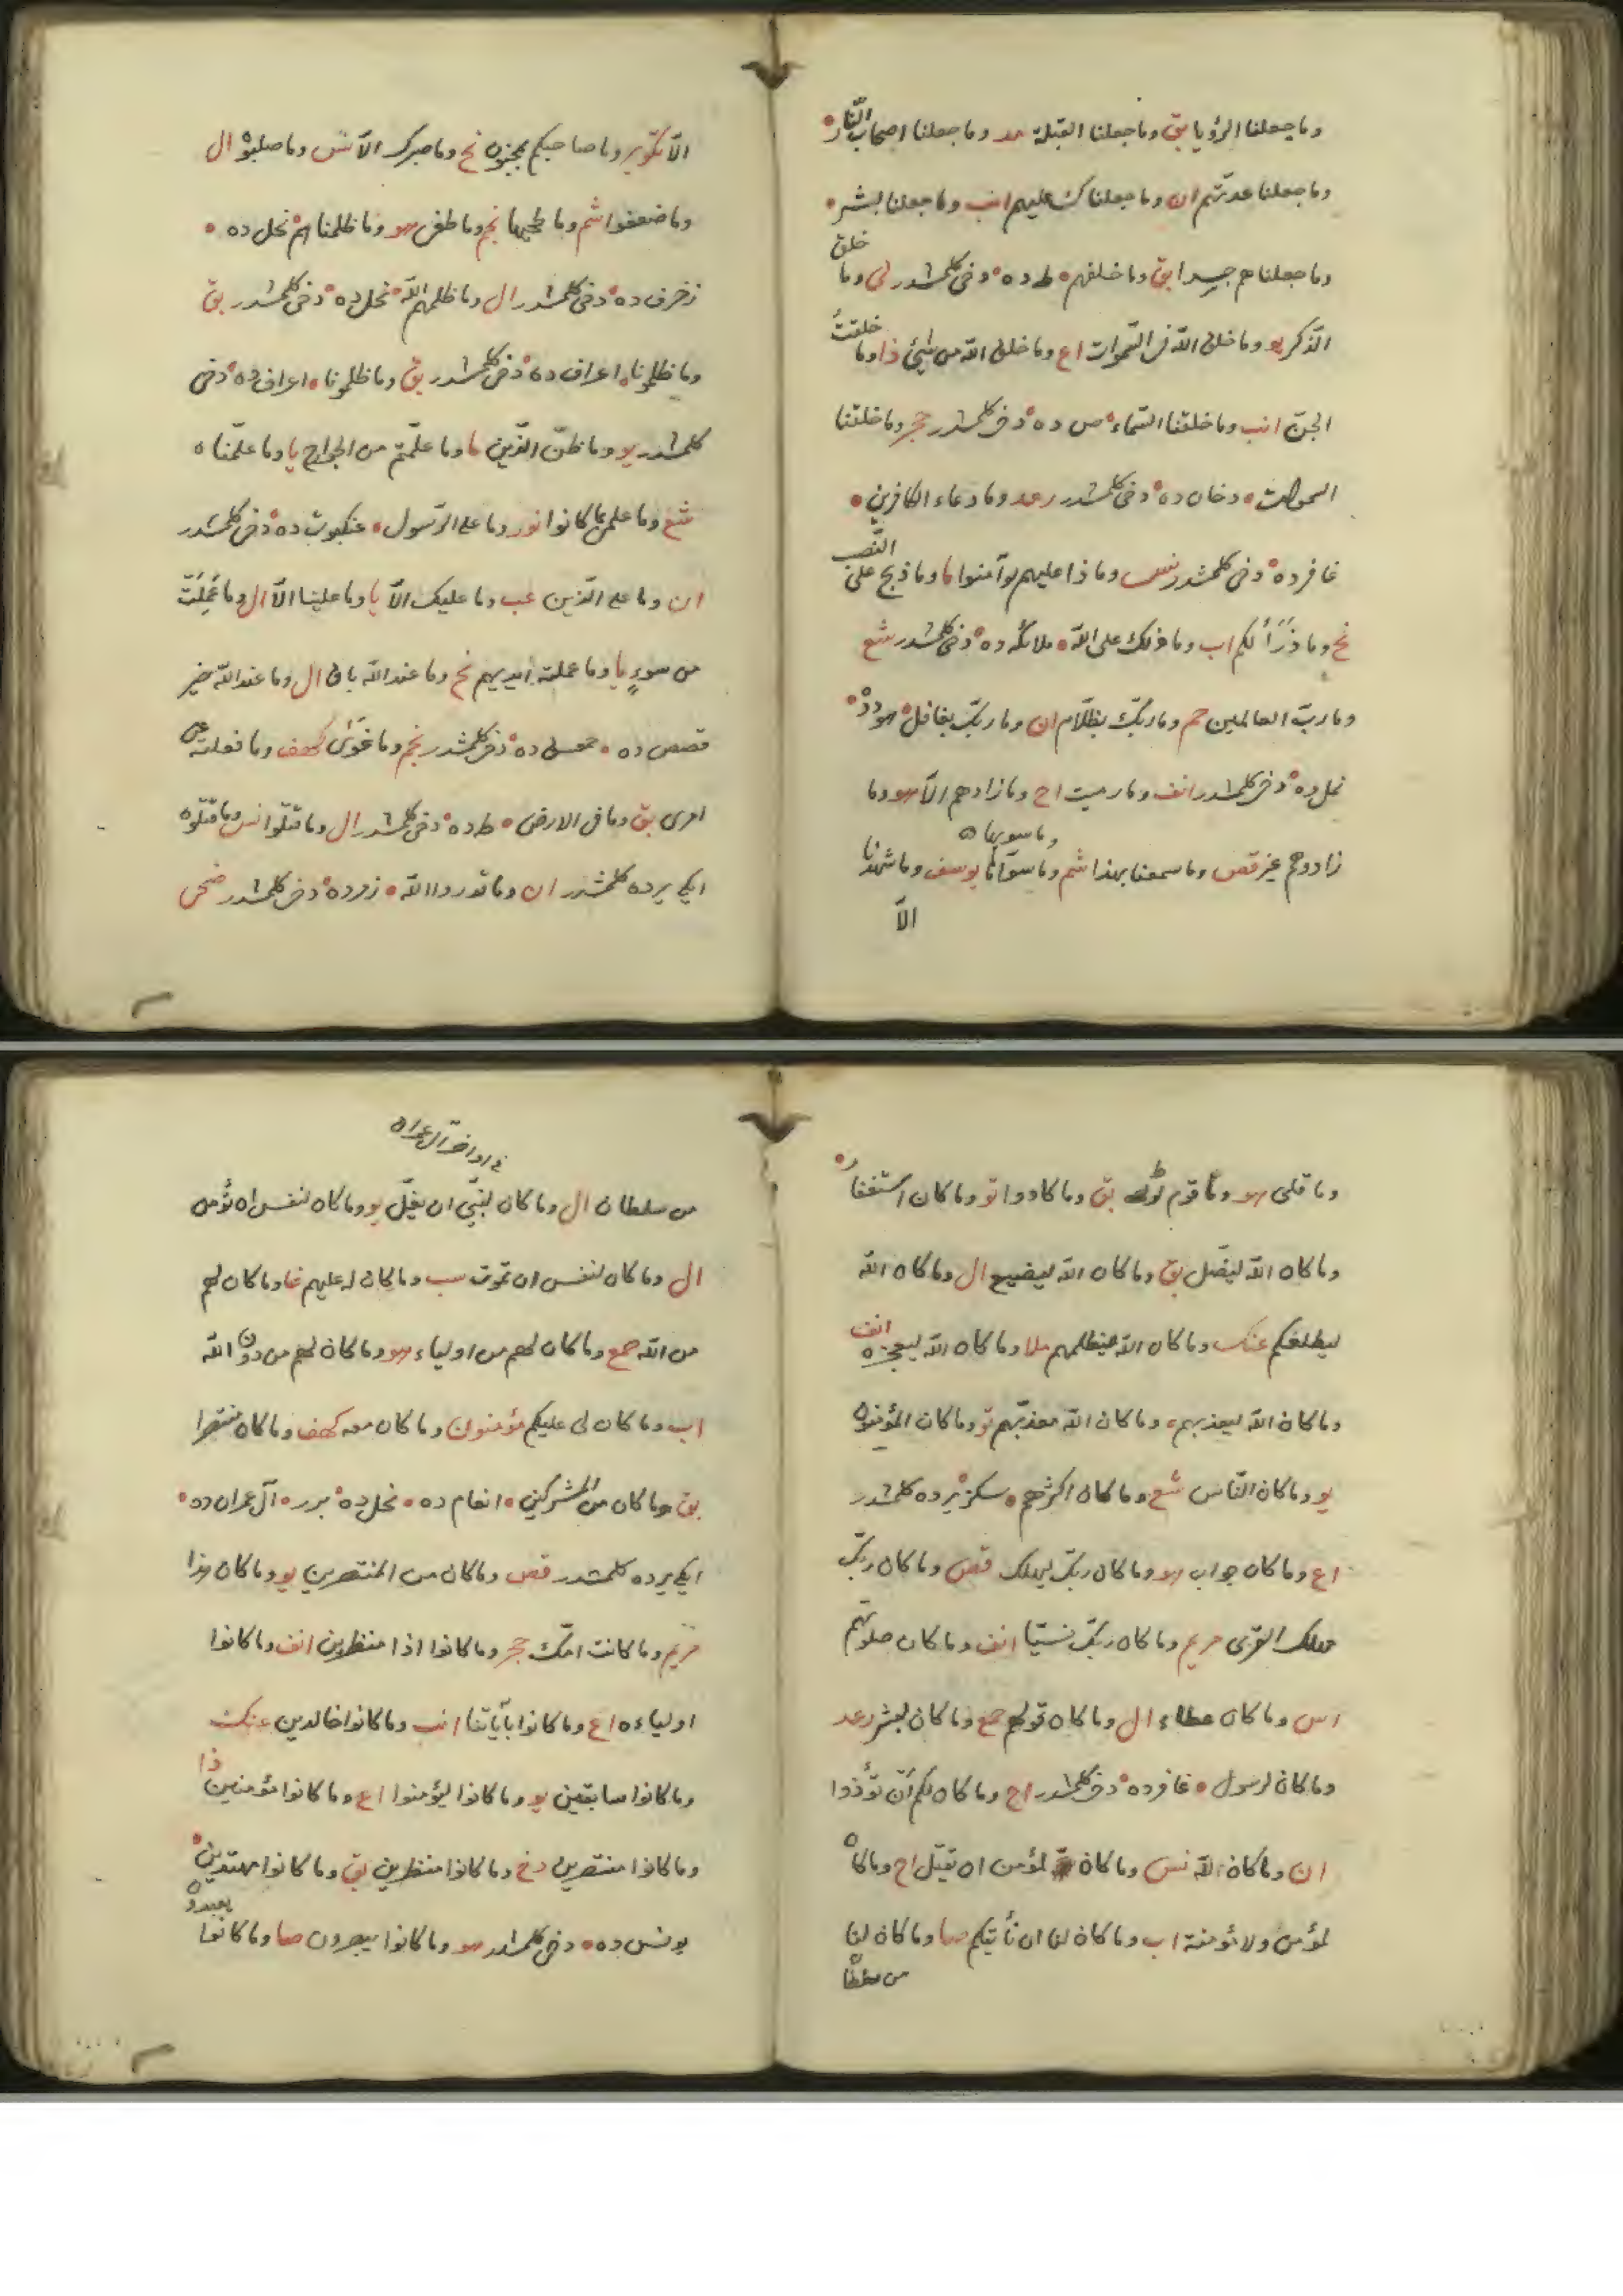 وما جعلنا الرؤيا بق وما جعلنا القبلة مد وما جعلنا اصحاب النار
وما جعلنا عدتهم ان وما جعلناك عليهم انب وما جعلنا لبشر
وما جعلناهم جسدا بق وما خلفهم طه ده دخى كلمشدر لى وما خلق
الذكر يو وما خلق الله فى السموات اع وما خلق الله من شئ ذا وما خلقت
الجن انب وما خلقنا السماء ص ده دخى كلمشدر حجر وما خلقنا
السموات دخان ده دخى كلمشدر رعد وما دعاء الكافرين
غافرده دخى كلمشدر نس وما ذا عليهم لو آمنوا ما وما ذبح على النصب
نح وما ذرأ لكم اب وما ذلك على الله ملائكه ده دخى كلمشدر شع
وما رب العالمين حم وما ربك بظلام ان وما ربك بغافل هود ده
نمل ده دخى كلمشدر انف وما رميت اح وما زادهم الا هو وما
زادوهم غير قص وما سمعنا بهذا شم وما سواها يوسف وما شهدنا
وما سويها
الا
الا تكوير وما صاحبكم بمجنون نح وما صبرك الا نس وما صلبوه ال
وما ضعفوا شم وما طحيها نجم وما طغى هو وما ظلمناهم نحل ده
زخرف ده دخى كلمشدر ال وما ظلمهم الله نحل ده دخى كلمشدر بق
وما ظلمونا اعراف ده دخى كلمشدر بق وما ظلمونا اعراف ده دخى
كلمشدر يو وما ظن الذين ما وما علمتم من الجوارح يا وما علمناه
شع وما علمى بما كانوا نور وما على الرسول عنكبوت ده دخى كلمشدر
ان وما على الذين عب وما عليك الا يا وما علينا الا ال وما عملت
من سوء يا وما عملته ايديهم نح وما عند الله باق ال وما عند الله خير
قصص ده ده دخى كلمشدر نجم وما غوى كهف وما فعلته عن
امرى بق وما فى الارض طه ده دخى كلمشدر ال وما قتلوا نس وما قتلوه
ايكى يرده كلمشدر ان وما قدروا الله زمرده دخى كلمشدر ضحى
وما قلى هو وما قوم لوط بق وما كادوا تو وما كان استغفار
وما كان الله ليضل بق وما كان الله ليضيع ال وما كان الله
ليطلعكم عنك وما كان الله ليظلمهم ملا وما كان الله ليعجزه انف
وما كان الله ليعذبهم وما كان الله معذبهم تو وما كان المؤمنون
يو وما كان الناس شع وما كان اكثرهم سكز يرده كلمشدر
اع وما كان جواب هو وما كان ربك ليهلك قص وما كان ربك
مهلك القرى مريم وما كان ربك نسيا انف وما كان صلوتهم
اس وما كان عطاء ال وما كان قولهم جمع وما كان لبشر رعد
وما كان لرسول غافرده دخى كلمشدر اح وما كان لكم ان تؤذوا
ان وما كان الله نس وما كان لمؤمن ان يقتل اح وما كان
لمؤمن ولا مؤمنة اب وما كان لنا ان نأتيكم صا وما كان لنا
من سلطان
فى اواخر آل عمران
من سلطان ال وما كان لنبى ان يغل يو وما كان لنفس ان تؤمن
ال وما كان لنفس ان تموت سب وما كان له عليهم غا وما كان لهم
من الله جمع وما كان لهم من اولياء هو وما كان لهم من دون الله
اب وما كان لى عليكم مؤمنون وما كان معه كهف وما كان منتصرا
بق وما كان من المشركين انعام ده نحل ده برر آل عمران ده
ايكى يرده كلمشدر قص وما كان من المنتصرين يو وما كان هذا
مريم وما كانت امك حجر وما كانوا اذا منظرين انف وما كانوا
اولياءه اع وما كانوا بآياتنا انب وما كانوا خالدين عنك
وما كانوا سابقين يو وما كانوا ليؤمنوا اع وما كانوا مؤمنين ذا
وما كانوا منتصرين دخ وما كانوا منظرين بق وما كانوا مهتدين
يونس ده دخى كلمشدر هو وما كانوا يبصرون صا وما كانوا يعبدون